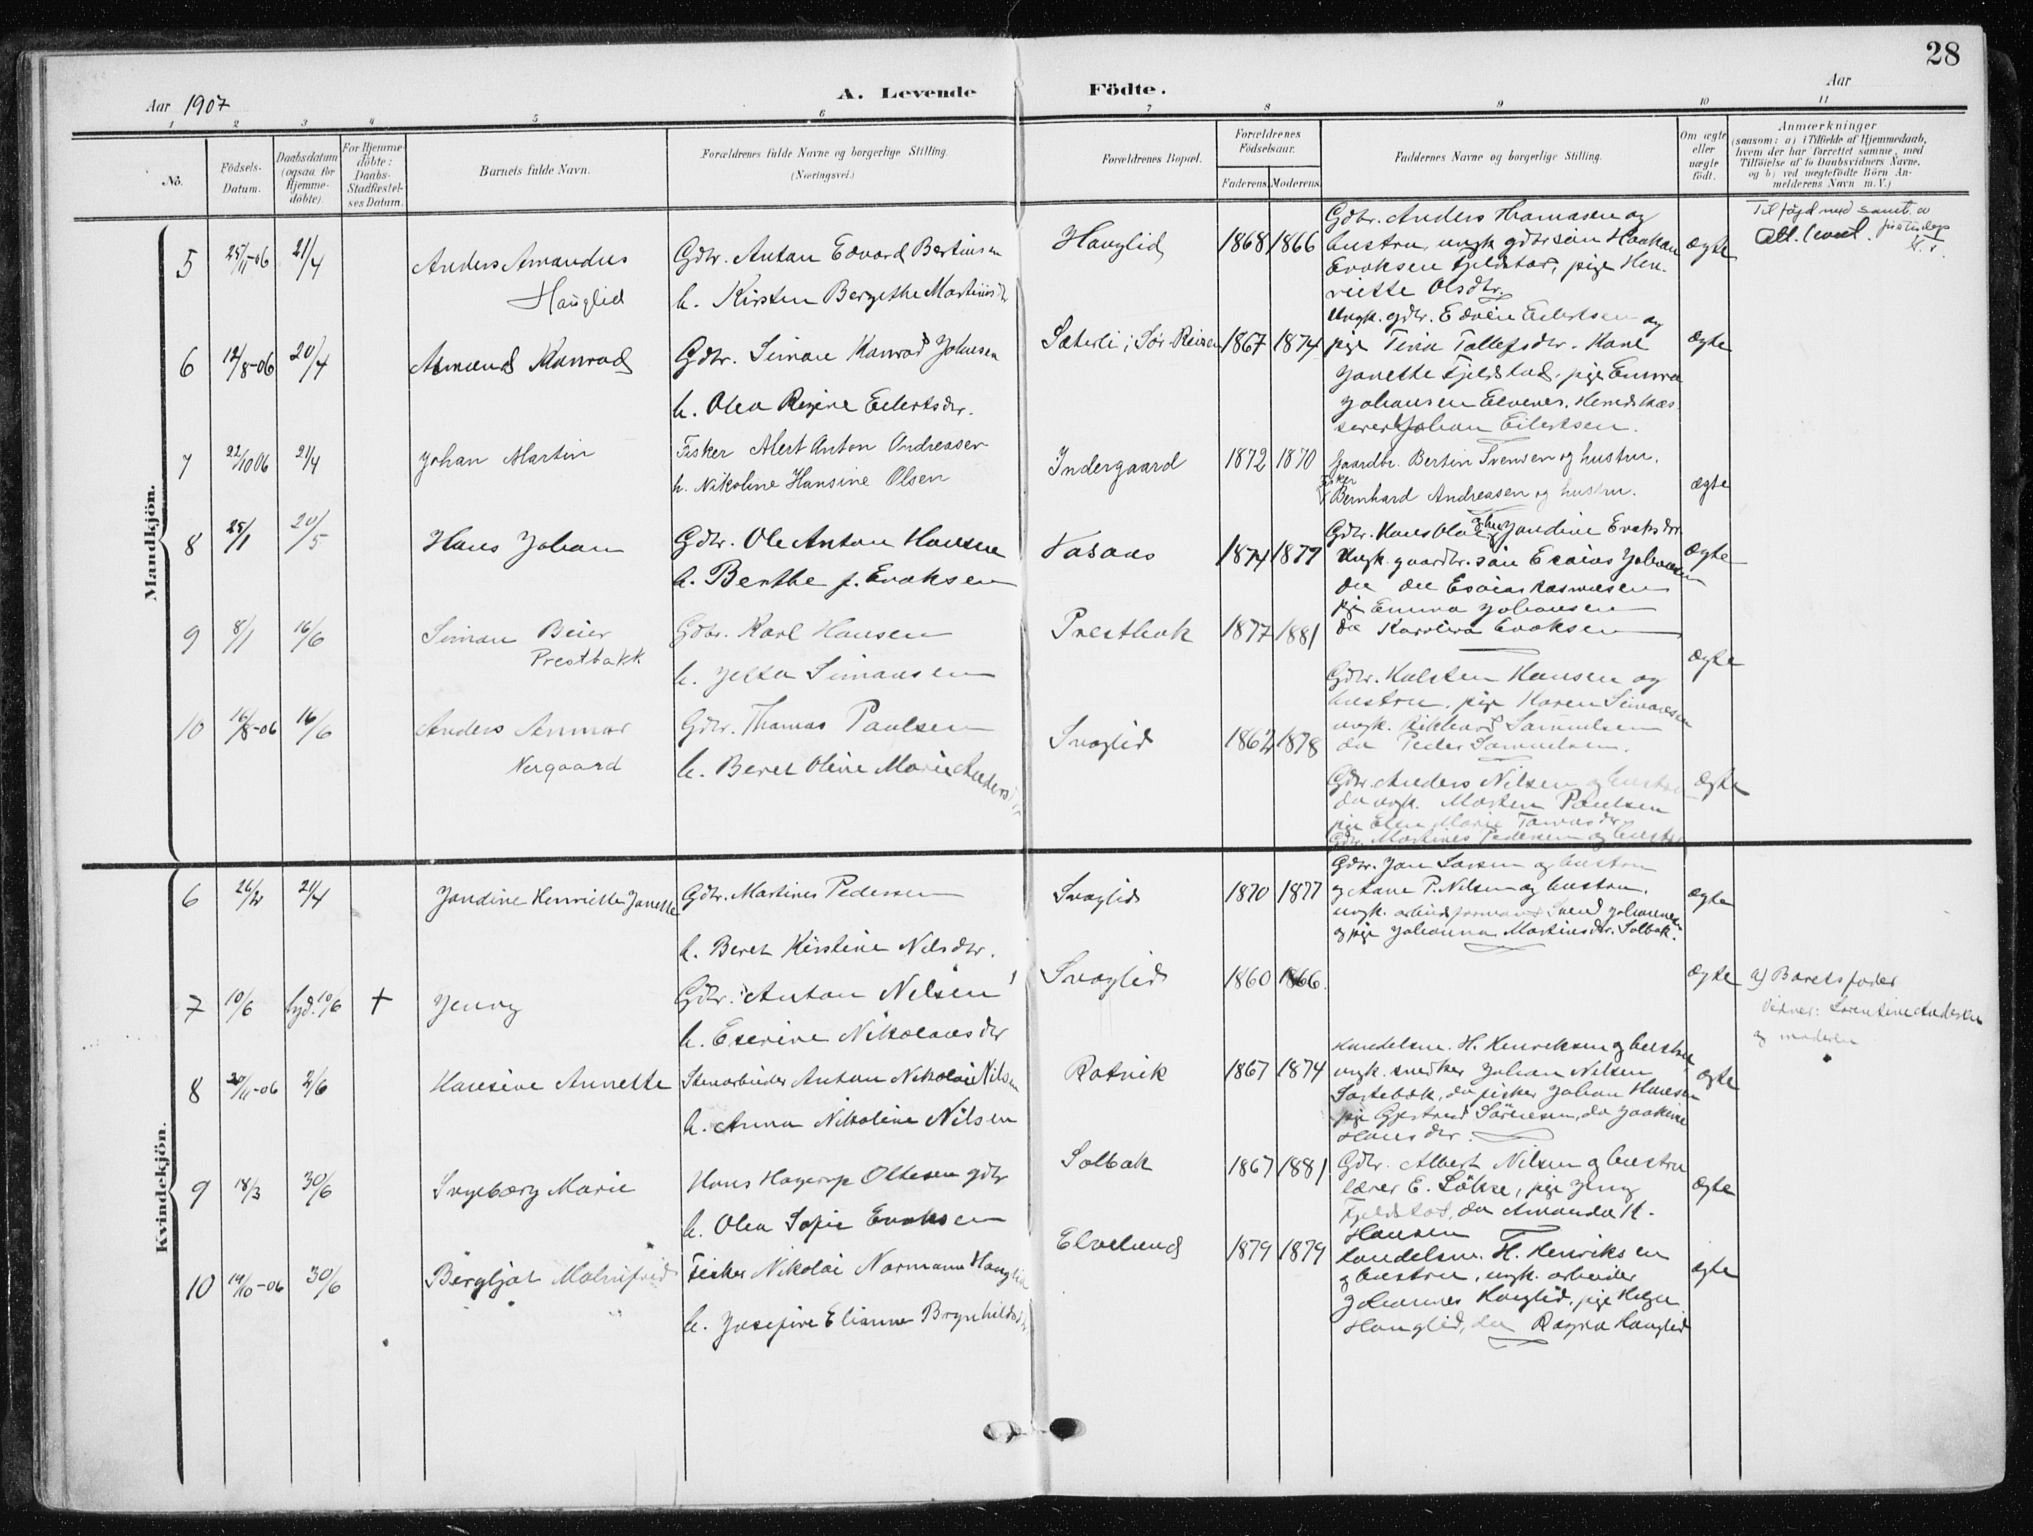 28
Aar 1907
A. Levende Födte.
Aar
1 2 3 4 5 6 7 8 9 10 11
No.
Födsels-Datum.
Daabsdatum (ogsaa for Hjemme-döbte).
For Hjemme-döbte: Daabs-Stadfæstel-ses Datum.
Barnets fulde Navn.
Forældrenes fulde Navne og borgerlige Stilling.
(Næringsvei.)
Forældrenes Bopæl.
Forældrenes Födselsaar.
Faderens. Moderens.
Faddernes Navne og borgerlige Stilling.
Om ægte eller uægte födt.
Anmærkninger
(saasom: a) i Tilfælde af Hjemmedaab,
hvem der har forrettet samme, med
Tilföielse af to Daabsvidners Navne,
og b) ved uægtefödte Börn An-
melderens Navn m. V.)
Mandkjön.
5 25/11-06 21/4 Anders Amandus
Hauglid
Gdbr. Anton Edvard Bertinsen
h. Kirsten Bergethe Martinsdtr
Hauglid 1868 1866
Gdbr. Anders Thomasen og
hustru, ungk. gdbrsøn Haakon
Enoksen Fjeldstad, pige Hen-
riette Olsdtr.
ægte
Tilføjd med samt. av
6 12/8-06 20/4 Amund Konrad
Gdbr. Simon Konrad Johnsen
h. Olea Regine Eilertsdtr.
Sæterli i Sør-Reisen 1867 1874
Ungk. gdbr. Edvin Eilertsen og
pige Tina Tollefsdtr. Kone
Janette Fjeldstad, pige Emma
Johansen Elvenes, Herredskas-
serer Johan Eilertsen.
ægte
7 22/10 06 21/4 Johan Martin
Fisker Alert Anton Andreasen
h. Nikoline Hansine Olsen
Indergaard 1872 1870
Gaardbr. Bertin Svensen og hustru.
Fisker
Bernhard Andreasen og hustru.
ægte
8 25/1 20/5 Hans Johan
Gdbr. Ole Anton Hansen
h. Berthe J. Enoksen
Vasaas 1874 1879
Gdbr. Hans Olai Jandine Enoksdtr.
Ungk. gaardbr.søn Esaias Johansen
do do Esaias Rasmussen
pige Emma Johansen
do Karolina Enoksen
ægte
9 8/1 16/6 Simon Beier
Prestbakk
Gdbr. Karl Hansen
h. Jetta Simonsen
Prestbak 1877 1881
Gdbr. Kalsten Hansen og
hustru, pige Karen Simonsen
ungk. Rikhard Samuelsen
do Peder Samuelsen.
ægte
10 16/8-06 16/6 Anders Anmar
Nergaard
Gdbr. Thomas Paulsen
h. Beret Oline Marie Anders
Snoglid 1862 1878
Gdbr. Anders Nilsen og hustru
do ungk. Morten Paulsen
pige Elen Marie Tomasdtr
Gdbr. Martines Pedersen og hustru
ægte
Kvindekjön.
6 26/2 21/4 Jandine Henriette Janette
Gdbr. Martines Pedersen
h. Beret Kirstine Nilsdtr.
Snoglid 1870 1877
Gdbr. Jon Larsen og hustru
og Aane P. Nilsen og hustru.
ungk. arbeidsformand Svend Johannesen
og pige Johanna Martinsdtr. Solbak.
ægte
7 10/6 hjd. 10/6 + Jenny
Gdbr. Anton Nilsen
h. Eserine Nikolausdtr
Snoglid 1860 1866.
ægte
a) Barnets fader
Vidner: Lorentine Andersen
og moderen
8 30/11-06 2/6 Hansine Annette
Stenarbeider Anton Nikolai Nilsen
h. Anna Nikoline Nilsen
Rotvik 1867 1874
Handelsm. H. Henriksen og hustru,
ungk. snedker Johan Nilsen
Sørtebæk, do fisker Johan Hansen
pige Gjertrud Sørensen, do Joakine
Hansdtr.
ægte
9 18/3 30/6 Ingeborg Marie
Hans Hagerup Ottesen gdbr
h. Olea Sofie Enoksen
Solbak 1867 1881
Gdbr. Albert Nilsen og hustru
lærer E. Løkse, pige Jenny
Fjeldstad, do Amanda H.
Hansen
ægte
10 14/10-06 30/6 Bergljot Malmfrid
Fisker Nikolai Normann Hauglid
h. Josefine Elianne Brynhildsdtr
Elvelund 1879 1879
Handelsm. H. Henriksen
og hustru, ungk. arbeider
Johannes Hauglid, pige Helga
Hauglid, do Ragna Hauglid
ægte